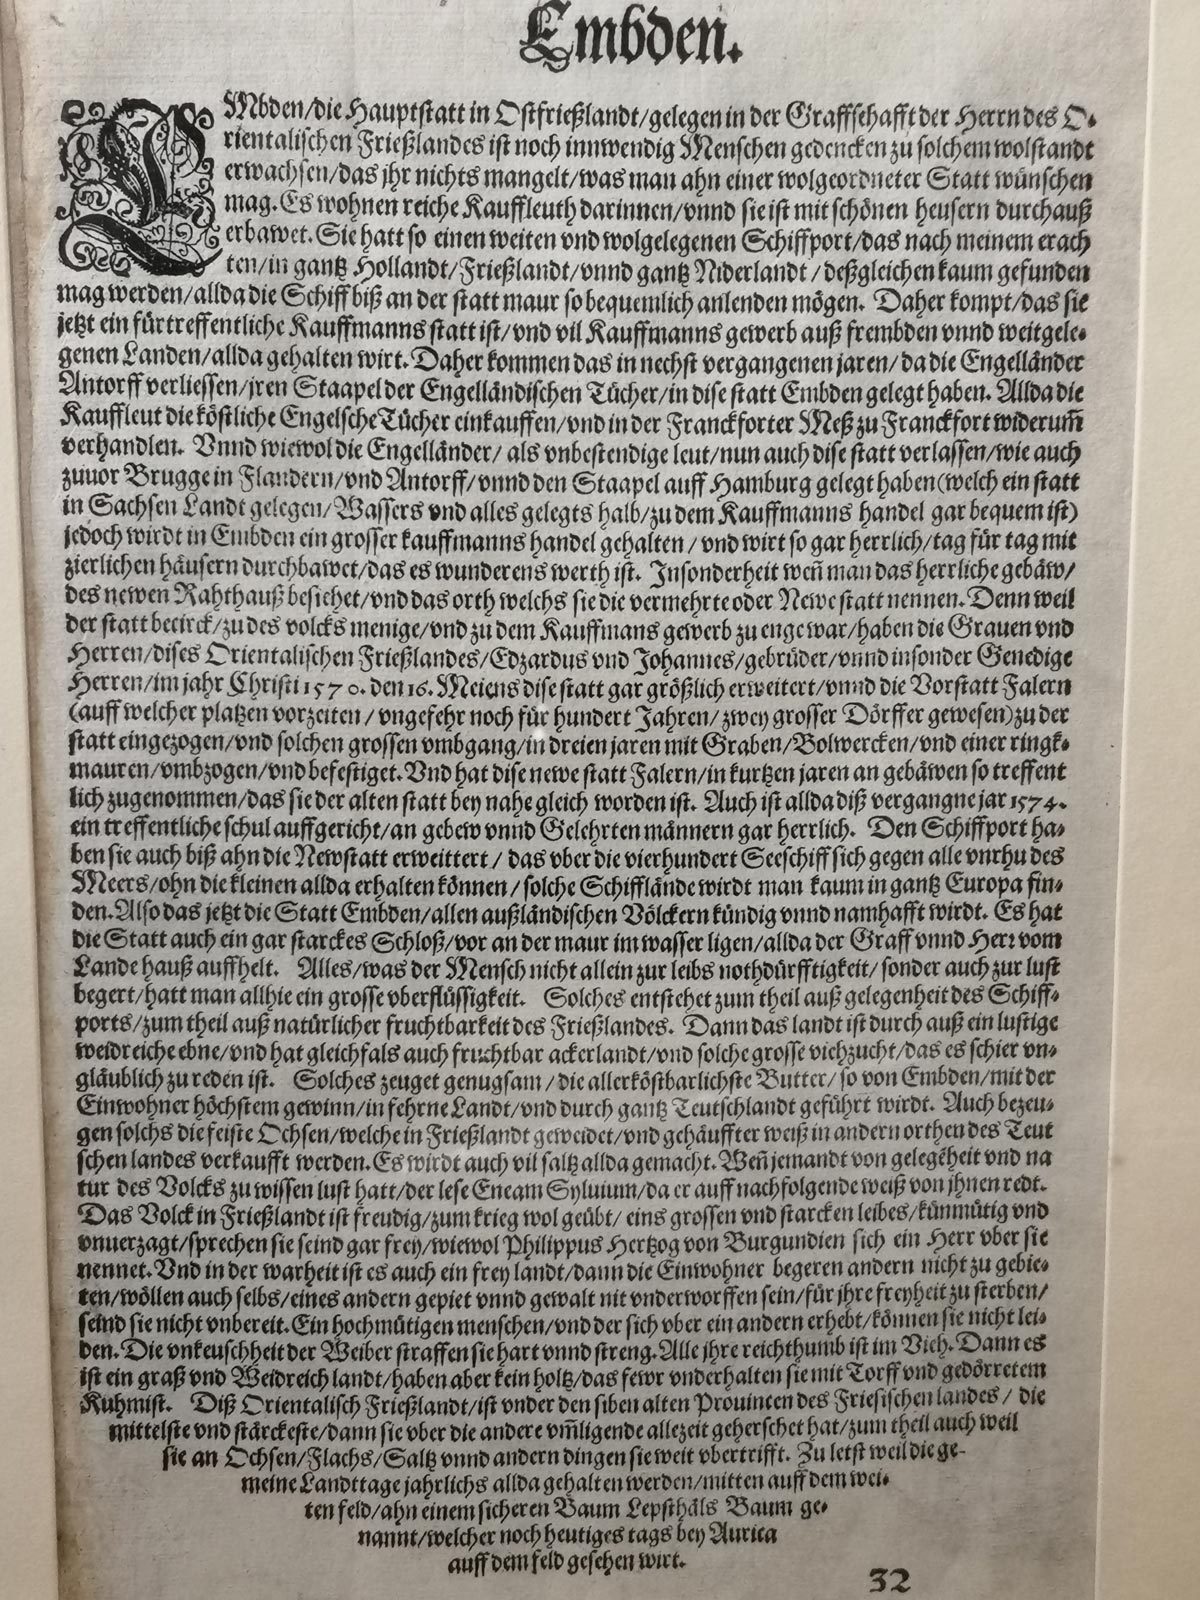 Embden.
EMbden/die Hauptstatt in Ostfrießlandt/gelegen in der Graffschafft der Herrn des O-
rientalischen Frießlandes ist noch innwendig Menschen gedencken zu solchem wolstandt
erwachsen/das jhr nichts mangelt/was man ahn einer wolgeordneter Statt wünschen
mag. Es wohnen reiche Kauffleuth darinnen/vnnd sie ist mit schönen heusern durchauß
erbawet. Sie hatt so einen weiten vnd wolgelegenen Schiffport/das nach meinem erach
ten/in gantz Hollandt/Frießlandt/vnnd gantz Niderlandt/deßgleichen kaum gefunden
mag werden/allda die Schiff biß an der statt maur so bequemlich anlenden mögen. Daher kompt/das sie
jetzt ein fürtreffentliche Kauffmanns statt ist/vnd vil Kauffmanns gewerb auß frembden vnnd weitgele-
genen Landen/allda gehalten wirt. Daher kommen das in nechst vergangenen jaren/da die Engelländer
Antorff verliessen/jren Staapel der Engelländischen Tücher/in dise statt Embden gelegt haben. Allda die
Kauffleut die köstliche Engelsche Tücher einkauffen/vnd in der Franckforter Meß zu Franckfort widerum̃
verhandlen. Vnnd wiewol die Engelländer/als vnbestendige leut/nun auch dise statt verlassen/wie auch
zuuor Brugge in Flandern/vnd Antorff/vnnd den Staapel auff Hamburg gelegt haben(welch ein statt
in Sachsen Landt gelegen/Wassers vnd alles gelegts halb/zu dem Kauffmanns handel gar bequem ist)
jedoch wirdt in Embden ein grosser kauffmanns handel gehalten/vnd wirt so gar herrlich/tag für tag mit
zierlichen häusern durchbawet/das es wunderens werth ist. Insonderheit weñ man das herrliche gebäw/
des newen Rahthauß besichet/vnd das orth welchs sie die vermehrte oder Newe statt nennen. Denn weil
der statt becirck/zu des volcks menige/vnd zu dem Kauffmans gewerb zu enge war/haben die Grauen vnd
Herren/dises Orientalischen Frießlandes/Edzardus vnd Johannes/gebrüder/vnnd insonder Genedige
Herren/im jahr Christi 1570. den 16. Meiens dise statt gar größlich erweitert/vnnd die Vorstatt Falern
(auff welcher platzen vorzeiten/vngefehr noch für hundert Jahren/zwey grosser Dörffer gewesen)zu der
statt eingezogen/vnd solchen grossen vmbgang/in dreien jaren mit Graben/Bolwercken/vnd einer ringk-
mauren/vmbzogen/vnd befestiget. Vnd hat dise newe statt Falern/in kurtzen jaren an gebäwen so treffent
lich zugenommen/das sie der alten statt bey nahe gleich worden ist. Auch ist allda diß vergangne jar 1574.
ein treffentliche schul auffgericht/an gebew vnnd Gelehrten männern gar herrlich. Den Schiffport ha-
ben sie auch biß ahn die Newstatt erweittert/das vber die vierhundert Seeschiff sich gegen alle vnrhu des
Meers/ohn die kleinen allda erhalten können/solche Schifflände wirdt man kaum in gantz Europa fin-
den. Also das jetzt die Statt Embden/allen außländischen Völckern kündig vnnd namhafft wirdt. Es hat
die Statt auch ein gar starckes Schloß/vor an der maur im wasser ligen/allda der Graff vnnd Herr vom
Lande hauß auffhelt. Alles/was der Mensch nicht allein zur leibs nothdürfftigkeit/sonder auch zur lust
begert/hatt man allhie ein grosse vberflüssigkeit. Solches entstehet zum theil auß gelegenheit des Schiff-
ports/zum theil auß natürlicher fruchtbarkeit des Frießlandes. Dann das landt ist durch auß ein lustige
weidreiche ebne/vnd hat gleichfals auch fruchtbar ackerlandt/vnd solche grosse viehzucht/das es schier vn-
gläublich zu reden ist. Solches zeuget genugsam/die allerköstbarlichste Butter/so von Embden/mit der
Einwohner höchstem gewinn/in fehrne Landt/vnd durch gantz Teutschlandt geführt wirdt. Auch bezeu-
gen solchs die feiste Ochsen/welche in Frießlandt geweidet/vnd gehäuffter weiß in andern orthen des Teut
schen landes verkaufft werden. Es wirdt auch vil saltz allda gemacht. Weñ jemandt von gelegẽheit vnd na
tur des Volcks zu wissen lust hatt/der lese Eneam Syluium/da er auff nachfolgende weiß von jhnen redt.
Das Volck in Frießlandt ist freudig/zum krieg wol geübt/eins grossen vnd starcken leibes/künmütig vnd
vnuerzagt/sprechen sie seind gar frey/wiewol Philippus Hertzog von Burgundien sich ein Herr vber sie
nennet. Vnd in der warheit ist es auch ein frey landt/dann die Einwohner begeren andern nicht zu gebie-
ten/wöllen auch selbs/eines andern gepiet vnnd gewalt nit vnderworffen sein/für jhre freyheit zu sterben/
seind sie nicht vnbereit. Ein hochmütigen menschen/vnd der sich vber ein andern erhebt/können sie nicht lei-
den. Die vnkeuschheit der Weiber straffen sie hart vnnd streng. Alle jhre reichthumb ist im Vieh. Dann es
ist ein graß vnd Weidreich landt/haben aber kein holtz/das fewr vnderhalten sie mit Torff vnd gedörretem
Kuhmist. Diß Orientalisch Frießlandt/ist vnder den siben alten Prouinten des Friesischen landes/die
mittelste vnd stärckeste/dann sie vber die andere vm̃ligende allezeit geherschet hat/zum theil auch weil
sie an Ochsen/Flachs/Saltz vnnd andern dingen sie weit vbertrifft. Zu letst weil die ge-
meine Landttage jahrlichs allda gehalten werden/mitten auff dem wei-
ten feld/ahn einem sicheren Baum Lepsthäls Baum ge-
nannt/welcher noch heutiges tags bey Aurica
auff dem feld gesehen wirt.
32